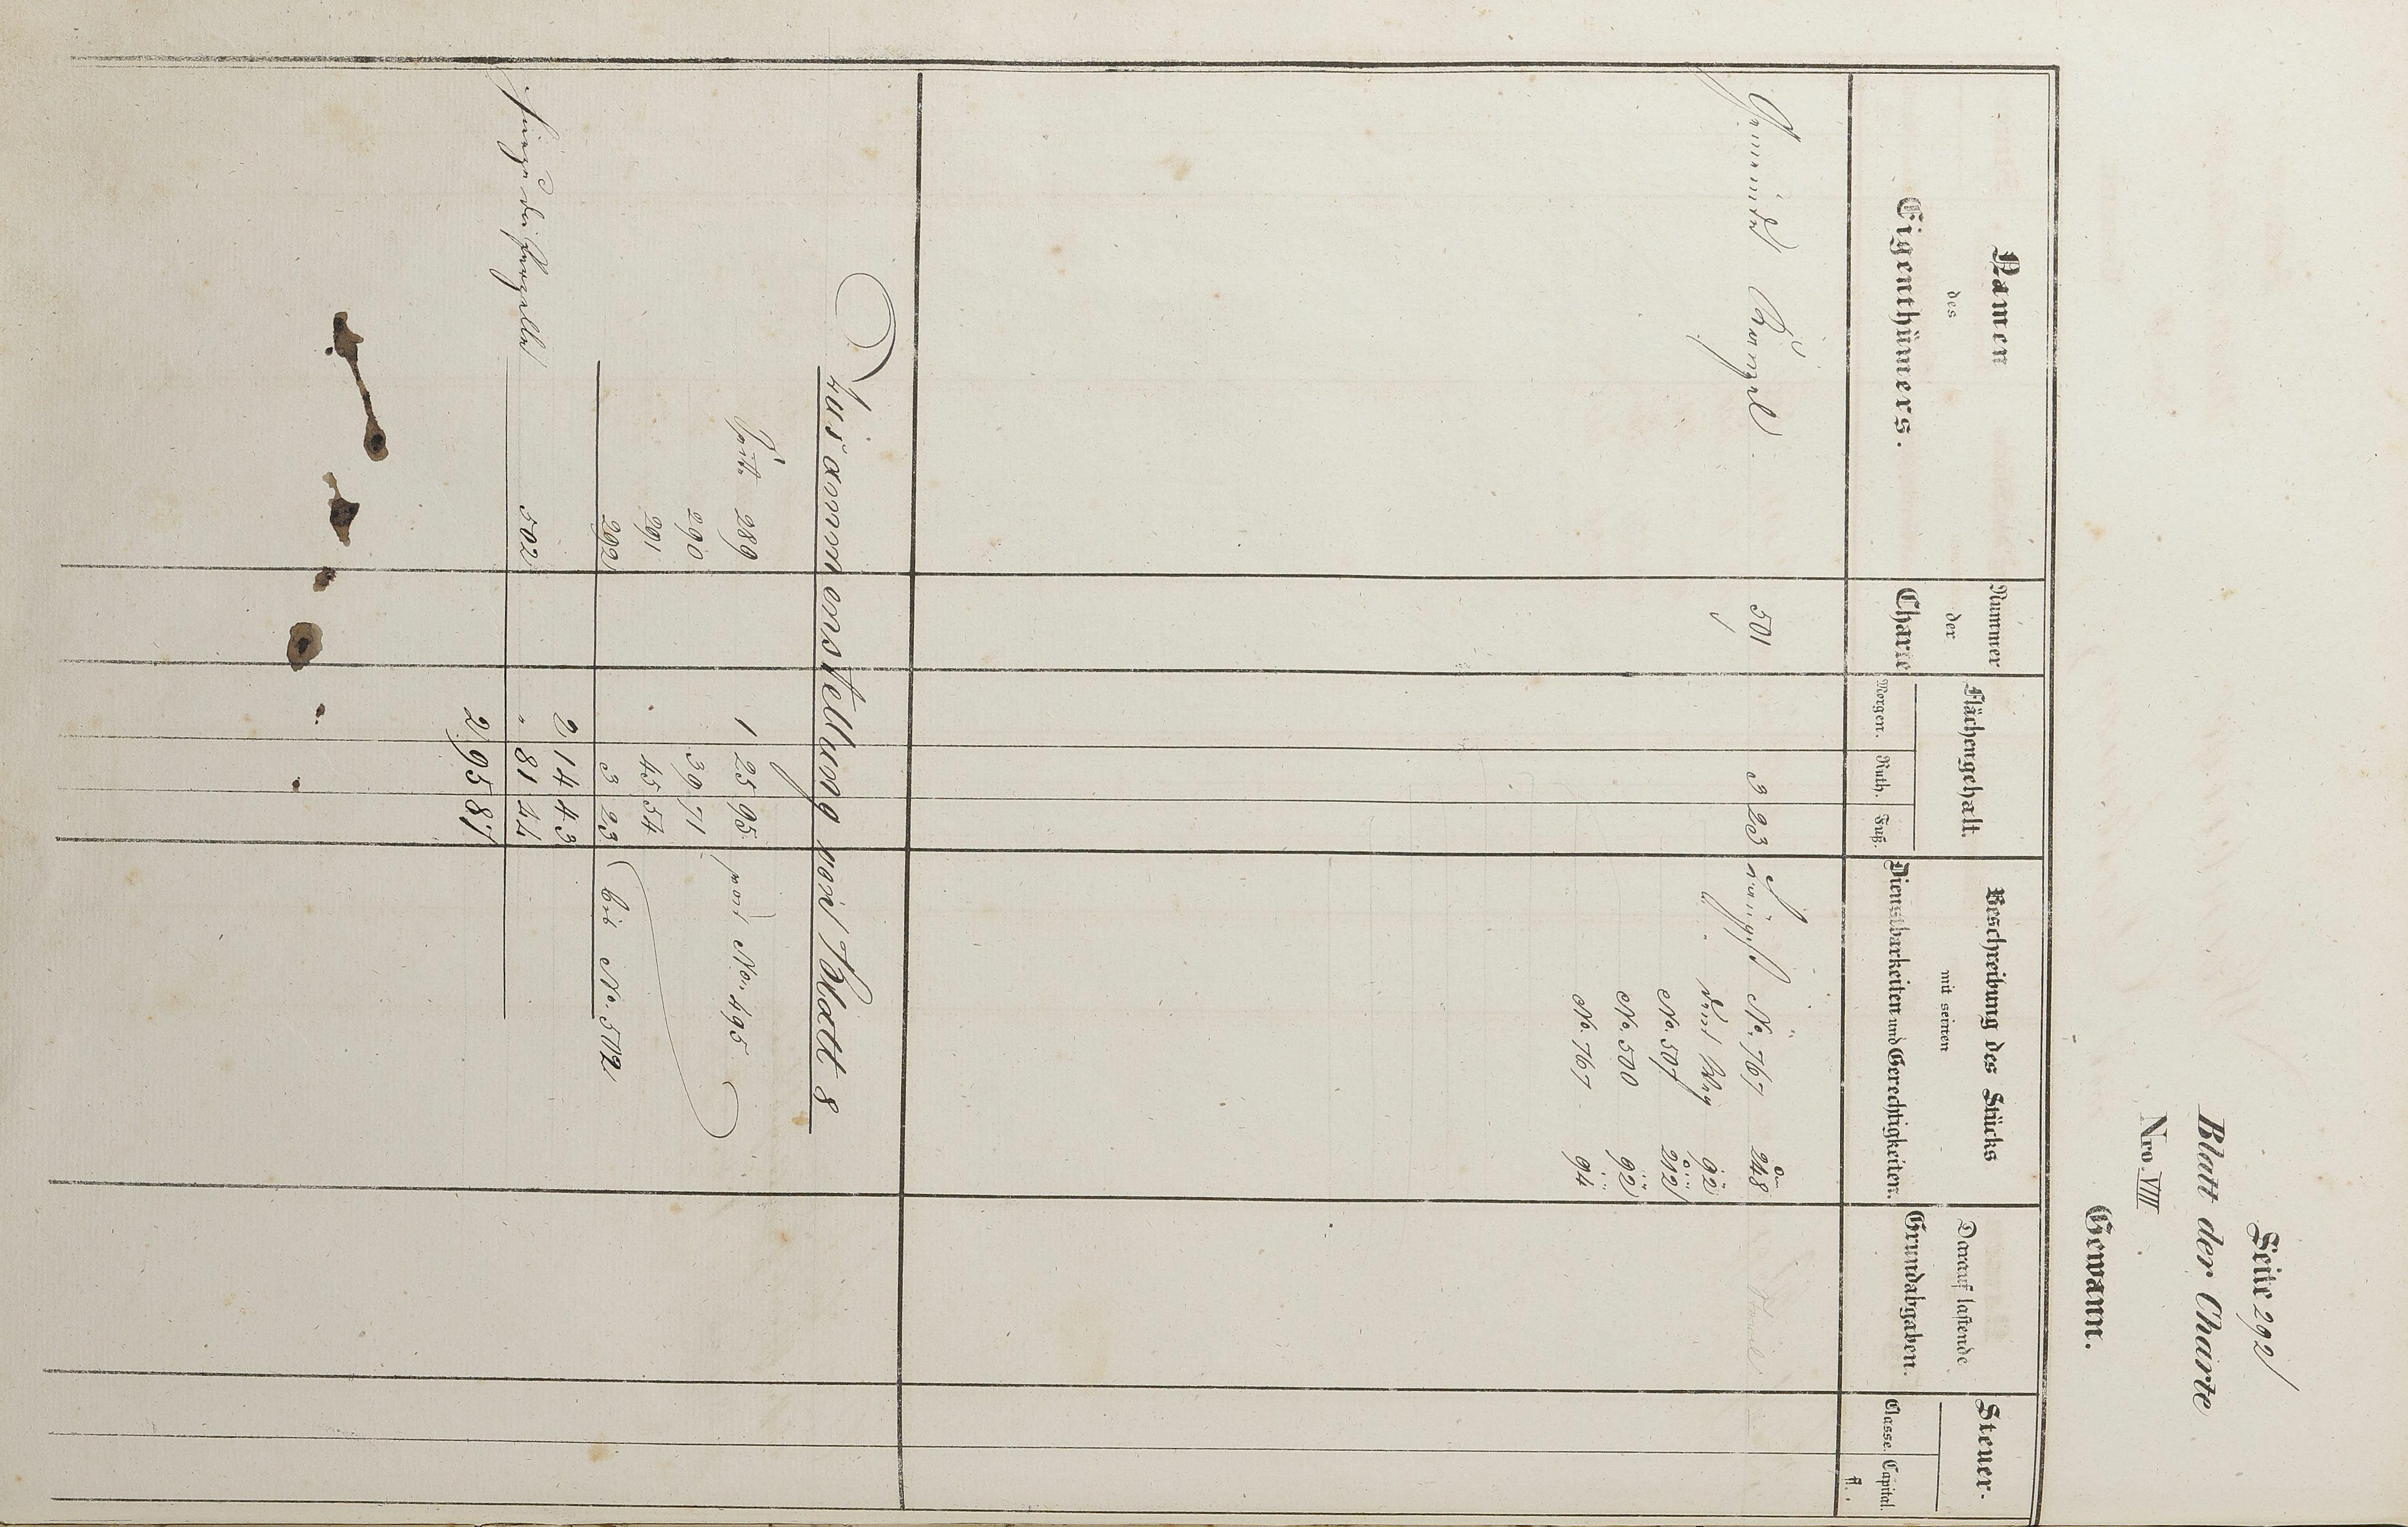 Seite 292
Blatt der Charte
Nro. VIII
Gewann.
Namen
des
Eigenthümers.
Nummer
der
Charte
Flächengehalt.
Morgen. Ruth. Fuß.
Beschreibung des Stücks
mit seinen
Dienstbarkeiten und Gerechtigkeiten.
Darauf lastende
Grundabgaben.
Steuer-
Classe. Capital.
fl.
Gemeinde 501 3 23 No. 767 248
der Weg 92
No. 507 212
No. 500 92
No. 767 94
Zusammenstellung von Blatt 8
Seite 289 1 25 95 von No. 495
290 39 71
291 45 54
292 3 23 bis No. 502
2 14 43
Hiezu die Parzelle 502 " 81 44
2 95 87